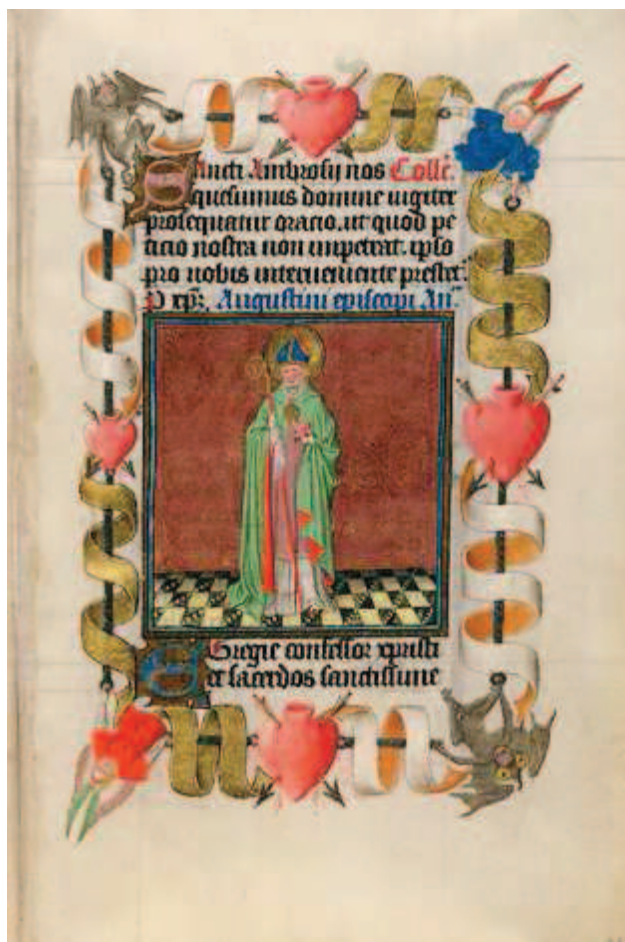 Sancti Ambrosij nos Collē.
quesumus domine iugiter
prosequatur oracio. ut quod pe
ticio nostra non impetrat. ipso
pro nobis interueniente prestet.
P xp̄r. Augustini episcopi An̄.
Egregie confessor xpristi
et sacerdos sanctissime